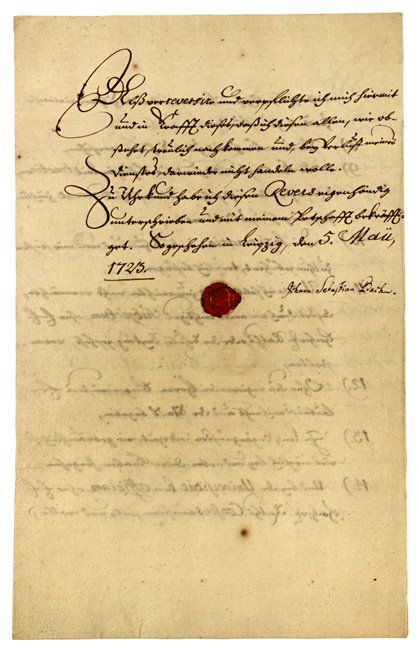 Alß verreversire und verpflichte ich mich hiermit
und in Krafft dieses, daß ich diesen allen, wie ob-
stehet, treulich nachkommen und, bey Verlust meines
Dienstes, darwieder nicht handeln wolle.
Zu Uhrkund habe ich diesen Revers eigenhändig
unterschrieben und mit meinem Petschafft bekräffti-
get. So geschehen in Leipzig, den 5. Maii,
1723.
Johann Sebastian Bach.